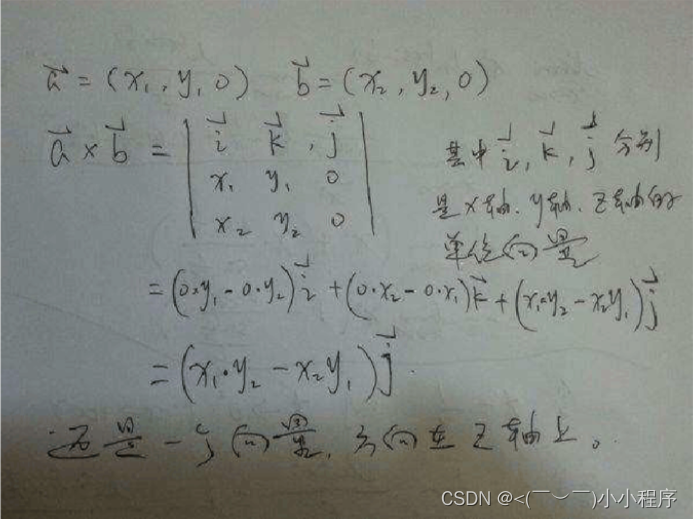 a⃗ = (x₁, y₁, 0)  b⃗ = (x₂, y₂, 0)
a⃗ × b⃗ = | i⃗ k⃗, j⃗ |
| x₁ y₁ 0 |
| x₂ y₂ 0 |
其中 i⃗, k⃗, j⃗ 分别
是x轴、y轴、z轴的
单位向量
= (0·y₁ - 0·y₂) i⃗ + (0·x₂ - 0·x₁) k⃗ + (x₁·y₂ - x₂y₁) j⃗
= (x₁·y₂ - x₂y₁) j⃗.
还是一个向量, 方向在z轴上。
CSDN @<(￣︶￣)小小程序